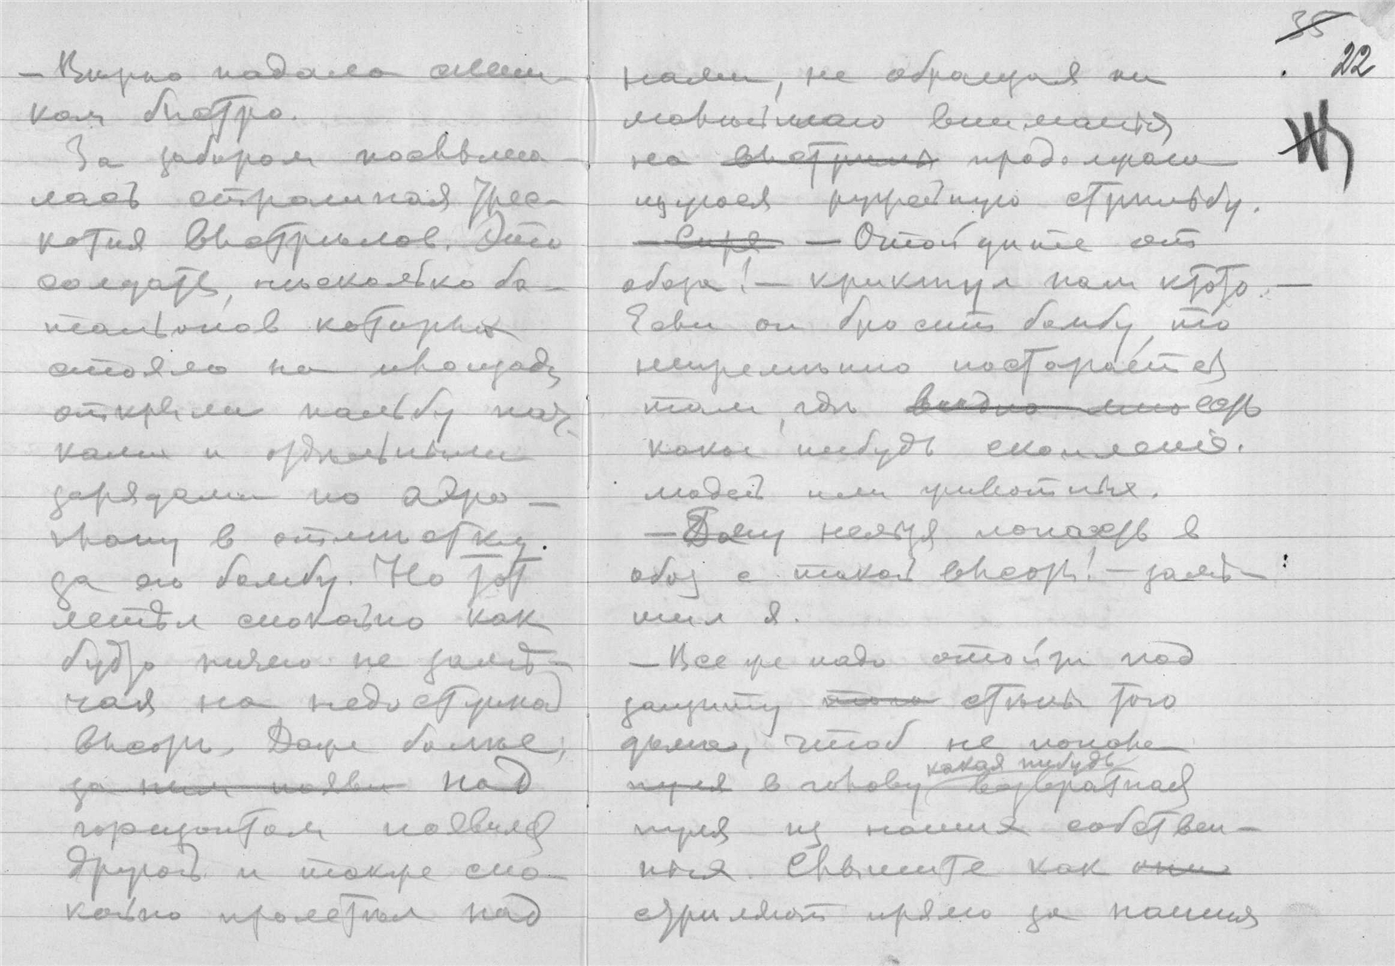 — Вирно падало слиш-
ком быстро.
За забором послыша-
лась страшная трес-
котня выстрелов. Это
солдаты, нѣсколько ба-
тальонов которых
стояло на площади,
открыли пальбу пач-
ками и отдѣльными
зарядами по аэро-
плану в отместку
за его бомбу. Но тот
летѣл спокойно как
будто ничего не замѣ-
чая на недоступной
высотѣ. Даже болѣе,
за ним появи над
горизонтом появился
другой и также спо-
койно пролетѣл над
35
22
нами, не обращая ни
малѣйшаго вниманія
на выстрѣлы продолжаю-
щуюся ружейную стрѣльбу.
— Отойдите от
обоза! — крикнул нам кто-то. —
Если он бросит бомбу, то
непременно постарается
там, гдѣ видно есть
какое нибудь скопленіе
людей или животных.
— Ему нельзя попасть в
обоз с такой высоты! — замѣ-
тил я.
— Все же надо отойти под
защиту того стѣны того
дома, чтоб не попала
какая нибудь
пуля в голову возвратная
пуля из наших собствен-
ных. Слышите как они
стрѣляют прямо за нашим